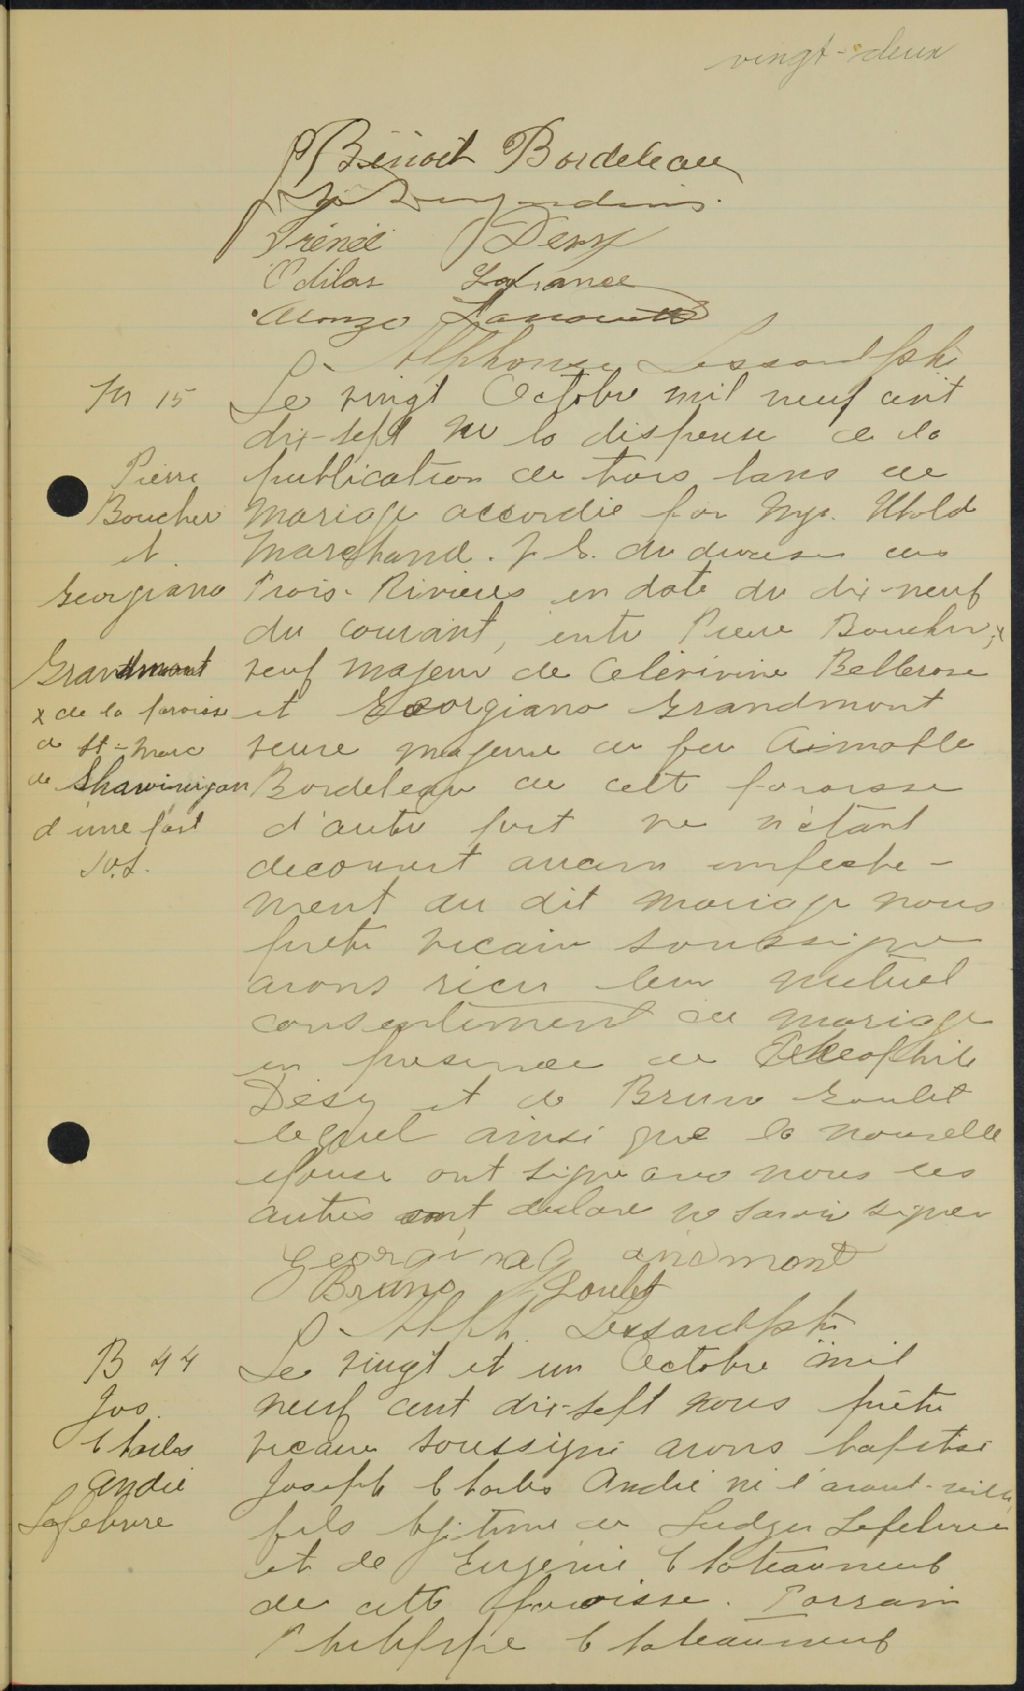 vingt-deux
Benoit Bordeleau
Irénée Désy
Odilas Lafrance
Alonzo
Alphonse Lessard Ptre
M 15
Pierre
Boucher
et
Georgiana
Grandmont
x de la paroisse
de St-Marc
de Shawinigan
d'une part
Le vingt Octobre mil neuf cent
dix-sept vu la dispense de la
publication de trois bans de
mariage accordée par Mgr. Ubald
Marchand. du diocèse des
Trois-Rivières en date du dix-neuf
du courant, entre Pierre Boucher, x
veuf majeur de Célérivine Bellerose
et Georgiana Grandmont
veuve majeure de feu Aimable
Bordeleau de cette paroisse
d'autre part ne n'étant
decouvert aucun empeche-
ment au dit mariage nous
pretre vicaire soussigné
avons recu leur mutuel
consentement de mariage
en presence de Théophile
Désy et de Bruno Goulet
lequel ainsi que la nouvelle
épouse ont signé avec nous les
autres ont déclaré ne savoir signer
Georgina Grandmont
Bruno Goulet
Alph. Lessard Ptre
B 44
Jos.
Charles
André
Lefebvre
Le vingt et un Octobre mil
neuf cent dix-sept nous prêtre
vicaire soussigné avons baptisé
Joseph Charles André né l'avant-veille,
fils légitime de Ludger Lefebvre
et de Eugénie Chateauneuf
de cette paroisse. Parrain
Philippe Chateauneuf